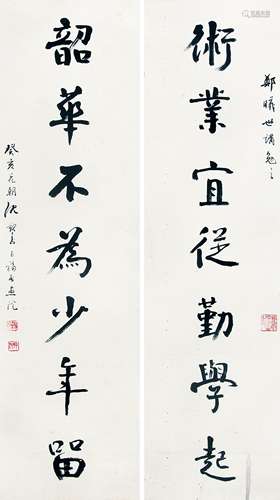 術業宜從勤學起
鄭曦世講勉之
韶華不為少年留
癸亥元朝沈